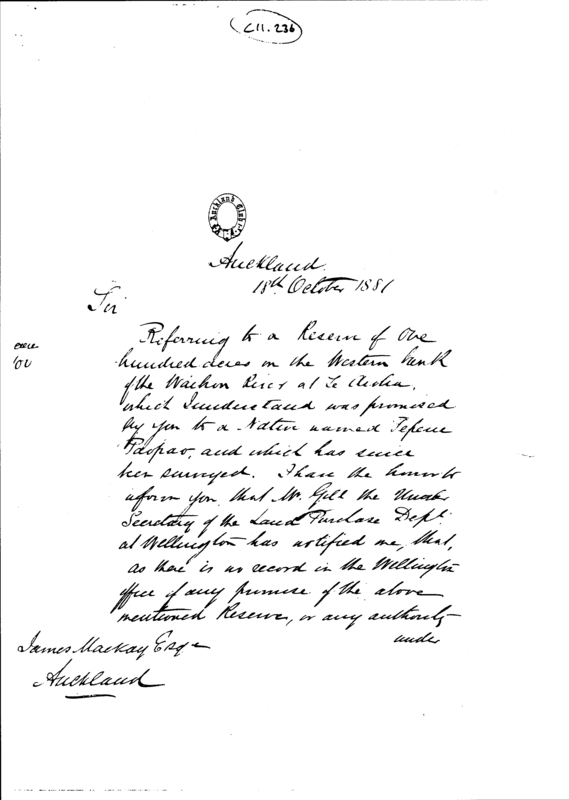 C11.236
Auckland Club
Auckland.
18th October 1881
Sir
Referring to a Reserve of One
hundred acres on the Western bank
of the Waihou River at Te Aroha,
which I understand was promised
by you to a Native named
and which has since
been surveyed. I have the honor to
inform you that Mr. Gill the Under
Secretary of the Land Purchase Dept.
at Wellington has notified me, that,
as there is no record in the Wellington
office of any promise of the above
mentioned Reserve, or any authority
under
James Mackay Esqre
Auckland